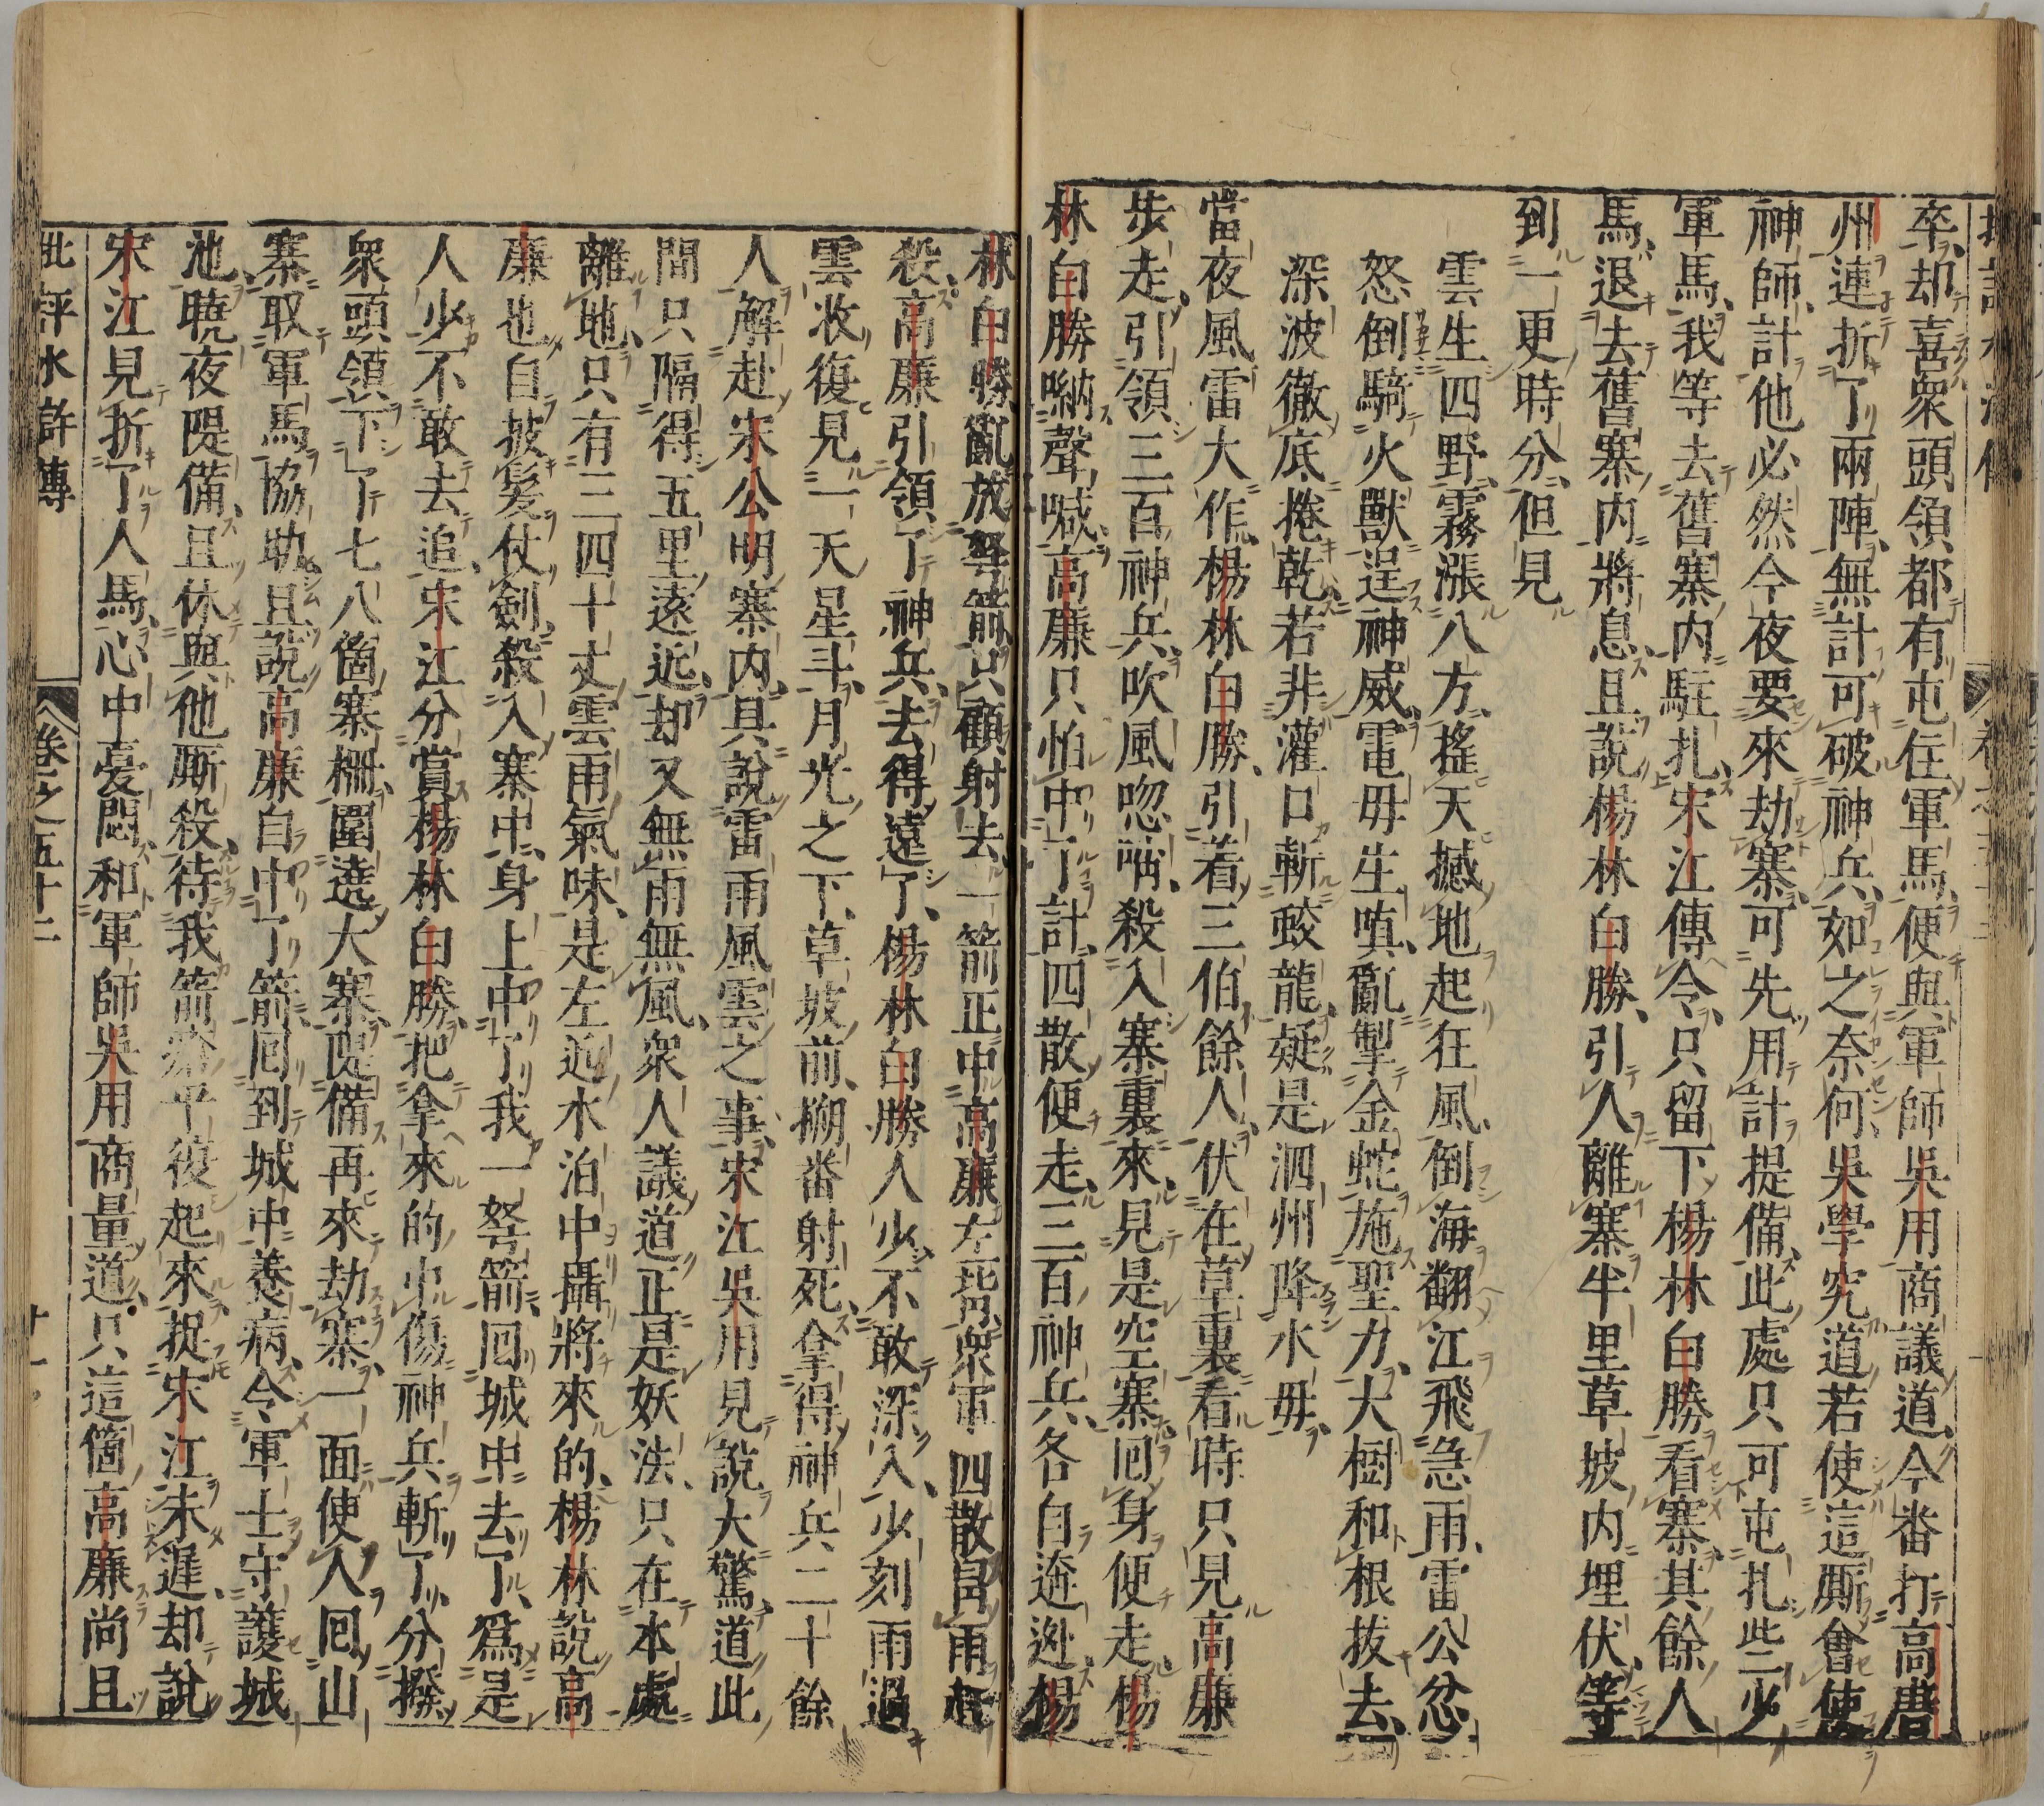 卒、却喜衆頭領都有屯住軍馬、便與軍師吳用商議道、今番打高唐
州連折了兩陣、無計可破神兵、如之奈何、吳學究道若使這厮會使
神師、計他必然今夜要來劫寨、可先用計提備、此處只可屯扎些二少
軍馬、我等去舊寨内駐扎、宋江傳令、只留下楊林白勝看寨、其餘人
馬、退去舊寨内將息、且說楊林白勝、引人離寨半里草坡内埋伏、等
到一更時分、但見
雲生四野、霧漲八方、搖天撼地起狂風、倒海翻江飛急雨、雷公忿
怒倒騎火獸逞神威、電母生嗔、亂掣金蛇施聖力、大樹和根拔去、
深波徹底捲乾、若非灌口斬蛟龍、疑是泗州降水母、
當夜風雷大作、楊林白勝、引着三伯餘人、伏在草裏看時只見高廉
步走、引領三百神兵、吹風唿哨、殺入寨裏來、見是空寨、囘身便走、楊
林白勝吶聲喊、高廉只怕中了計、四散便走、三百神兵、各自逩迯、楊
林白勝、亂放弩箭、只顧射去、一箭正中高廉左背、衆軍四散冒雨赶
殺、高廉引領了神兵、去得遠了、楊林白勝人少、不敢深入、少刻雨過
雲收、復見一天星斗、月光之下、草坡前、搠番射死、拿得神兵二十餘
人、解赴宋公明寨内、具說雷雨風雲之事、宋江吳用見說大驚、道此
間只隔得五里遠近、却又無雨無風、衆人議道、正是妖法、只在本處
離地、只有三四十丈、雲雨氣味、是左近水泊中攝將來的、楊林說高
廉也自披髮仗劍、殺入寨中、身上中了我一弩箭、囘城中去了、爲是
人少、不敢去追、宋江分賞楊林白勝、把拿來的中傷神兵斬了、分撥
衆頭領、下了七八箇寨柵、圍遶大寨、隄備再來劫寨、一面使人囘山
寨取軍馬協助、且說高廉自中了箭、囘到城中養病、令軍士守護城
池、曉夜隄備、且休與他厮殺、待我箭瘡平復起來、捉宋江未遲、却說
宋江見折了人馬、心中憂悶、和軍師吳用商量道、只這箇高廉尚且
批評水滸傳　卷之五十二　十一